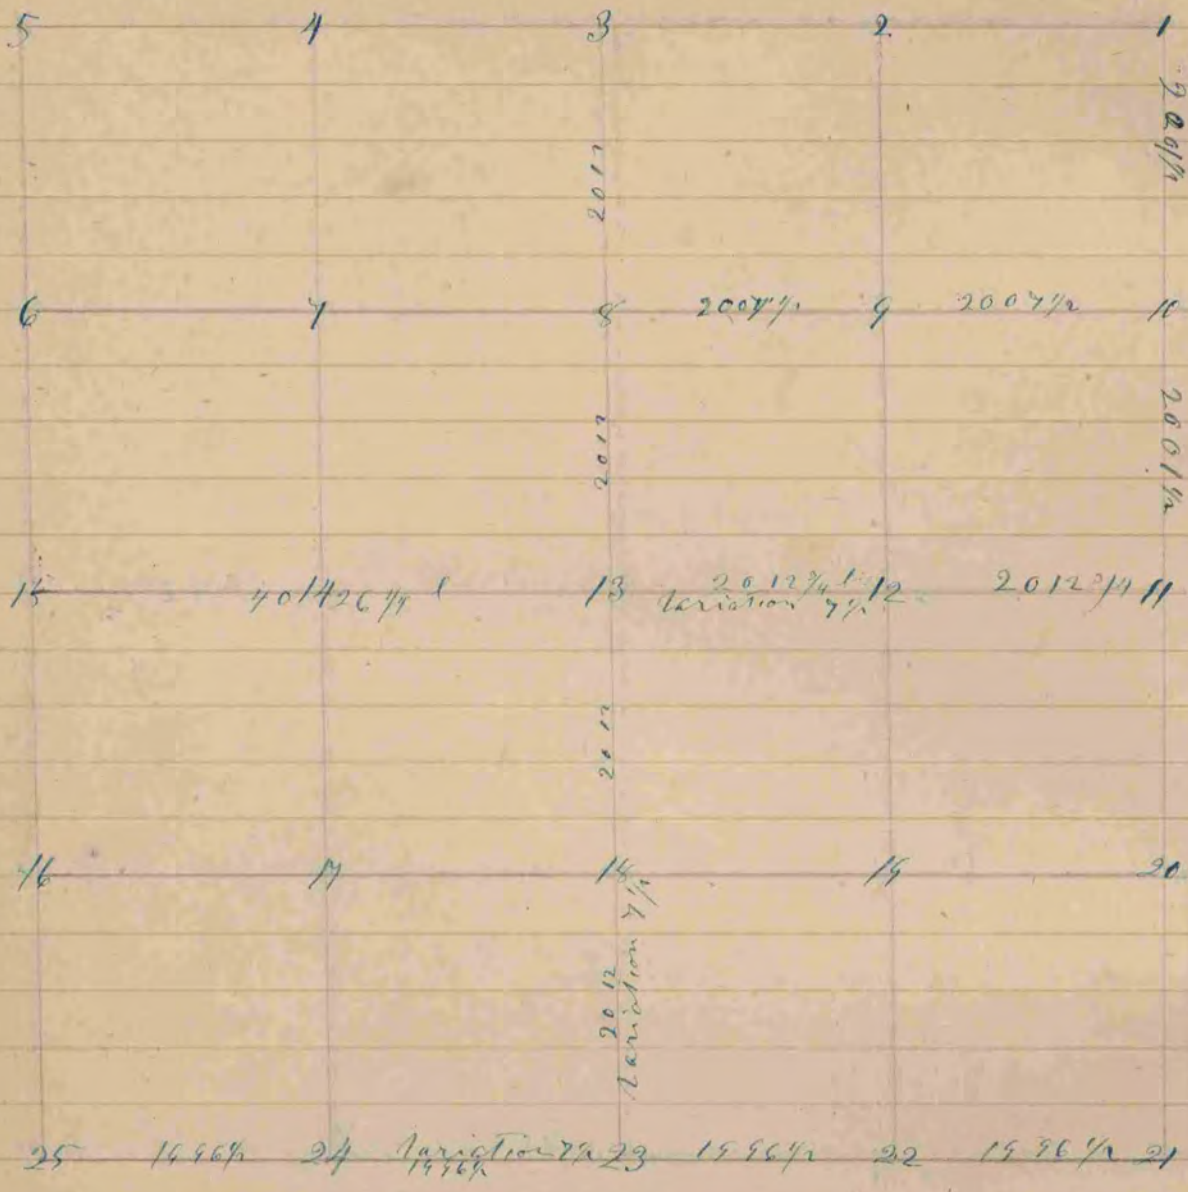 5 4 3 2 1
2001 1/2
2012
6 7 8 2007 1/2 9 2007 1/2 10
2001 1/2
2012
15 4014 26 1/4 l 13 2012 3/4 l 12 2012 3/4 11
Variation 7 1/2
2012
16 17 18 19 20
2012
Variation 7 1/2
25 1996 1/2 24 Variation 7 1/2 23 1996 1/2 22 1996 1/2 21
1996 1/2